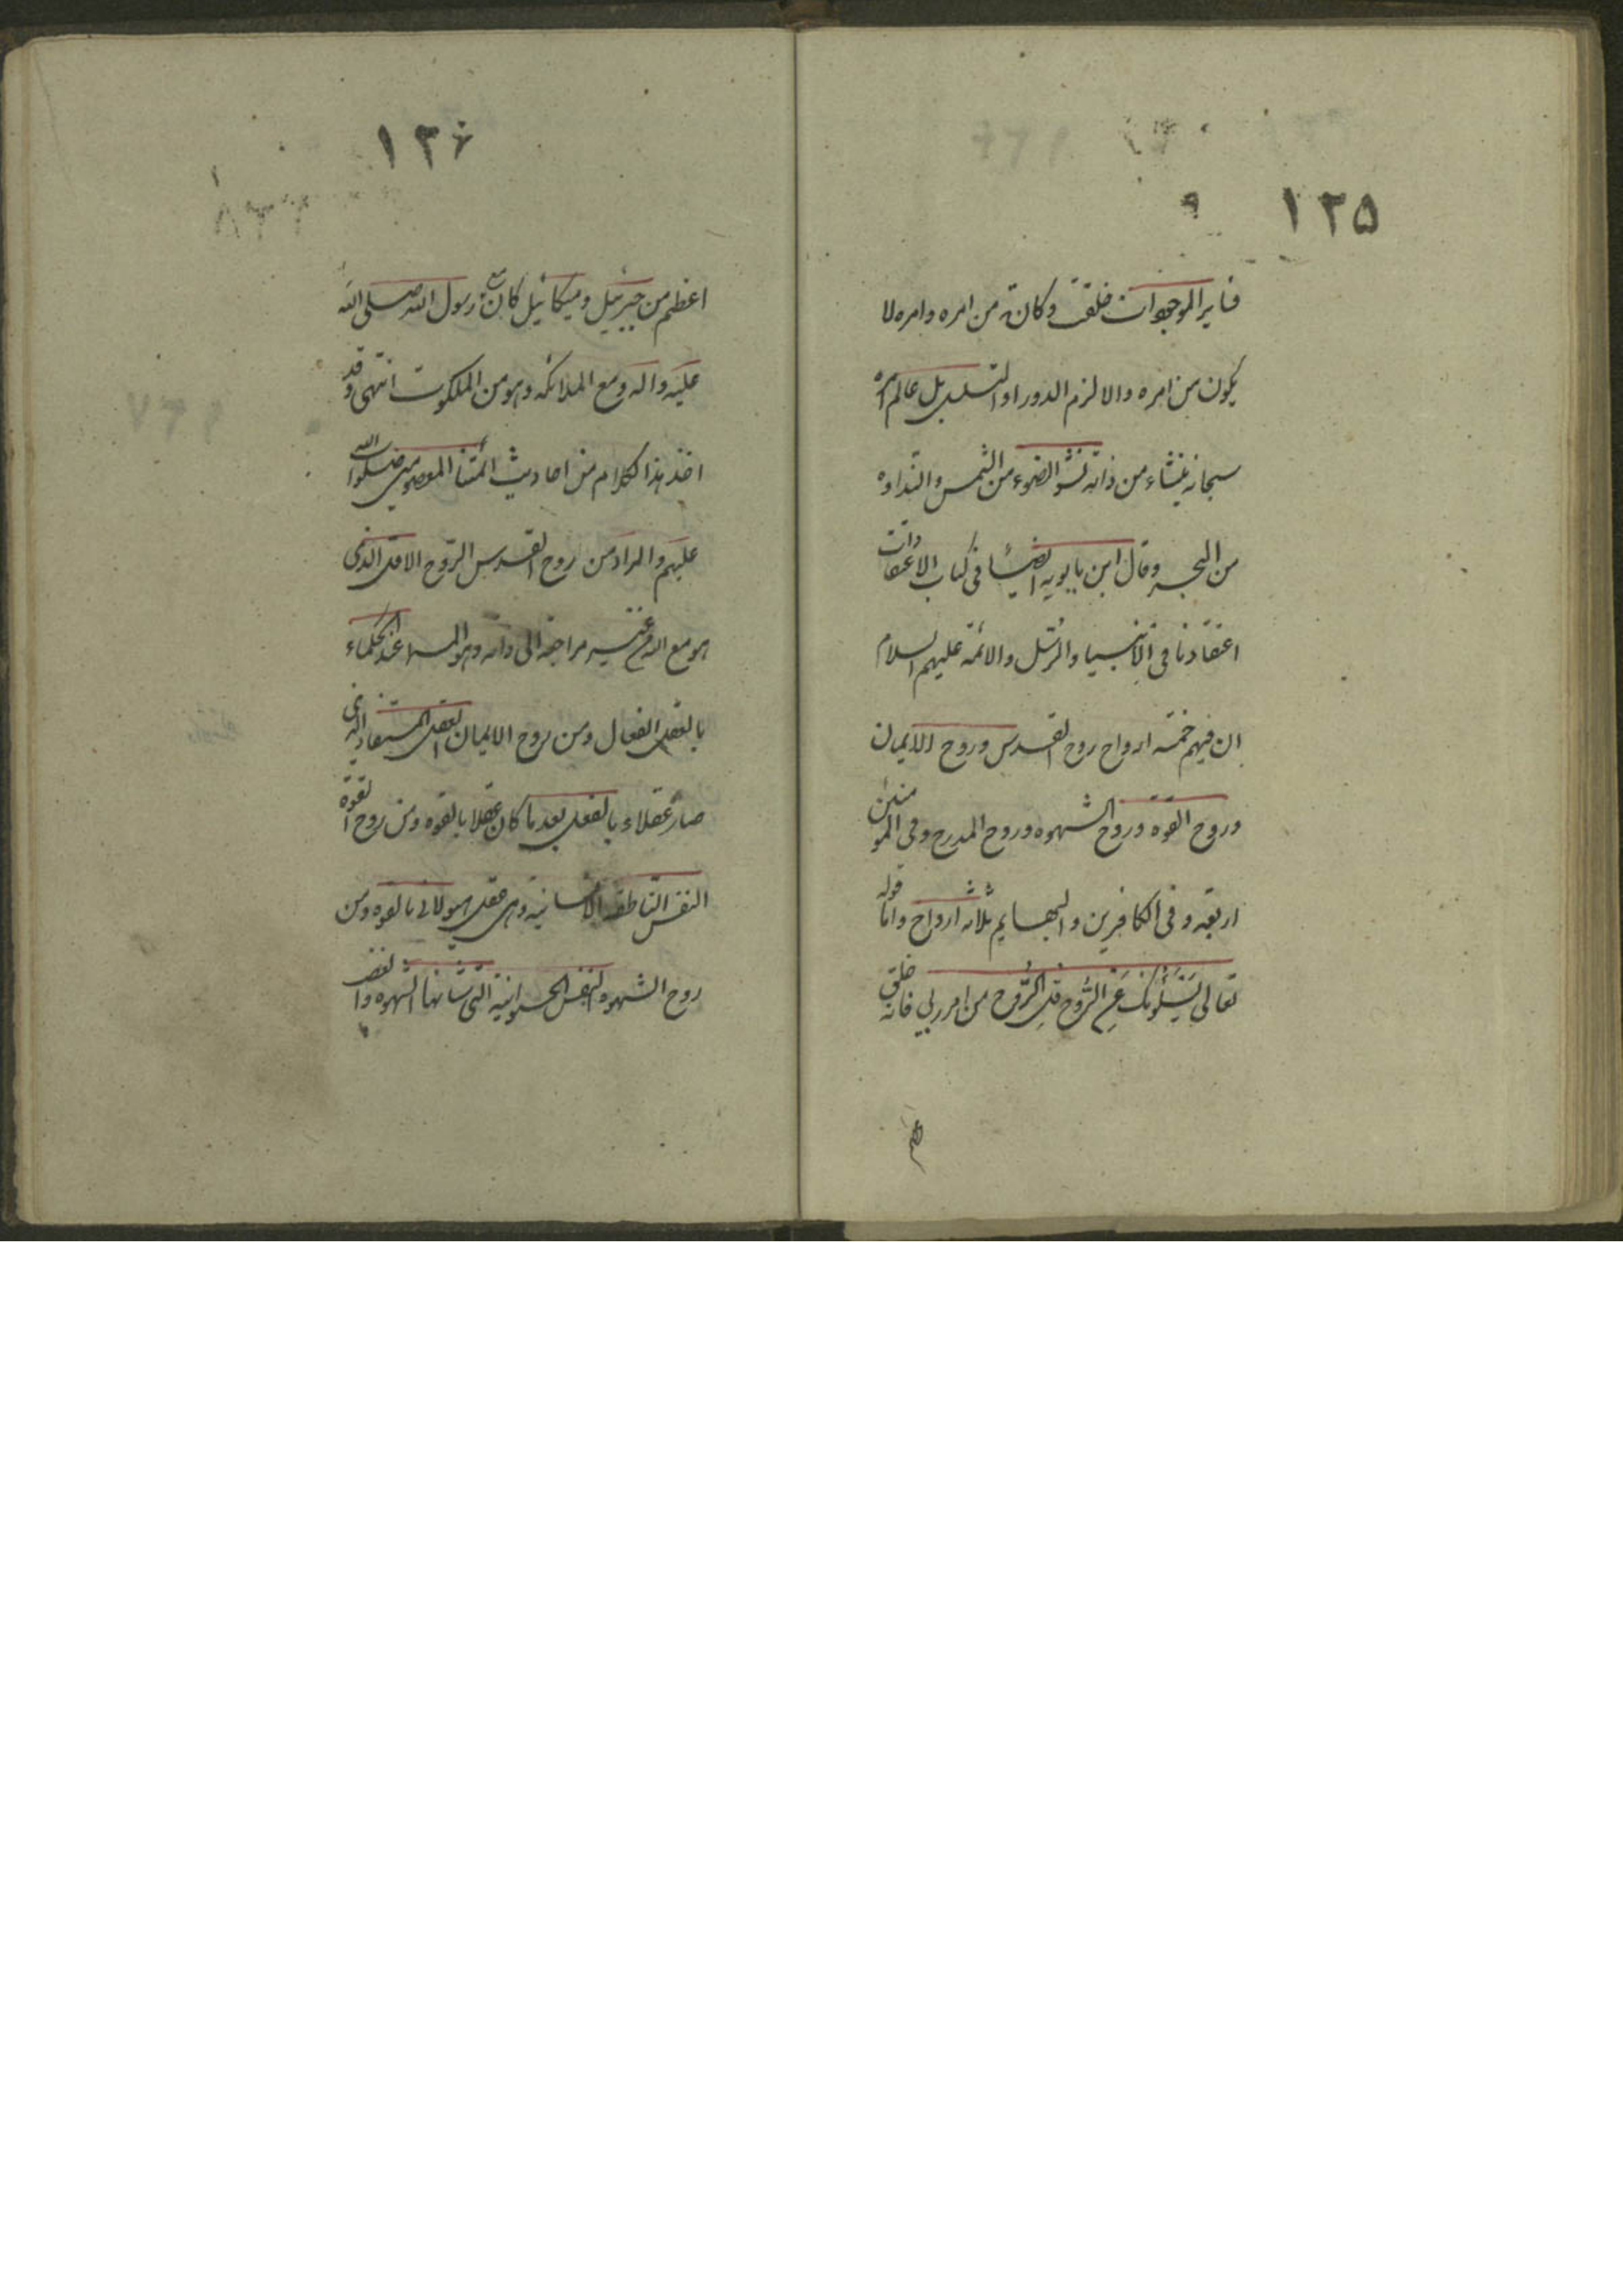 ١٢٥
فساير الموجودات خلقت وكانت من امره وامره لا
يكون من امره والا لزم الدور او التسلسل بل عالم امره
سبحانه ينشاء من ذاته نشو الضوء من الشمس والنداوه
من البحر وقال ابن بابويه ايضا فى كتاب الاعتقادات
اعتقادنا فى الانبيا والرسل والائمة عليهم السلام
ان فيهم خمسه ارواح روح القدس وروح الايمان
وروح القوه وروح الشهوه وروح المدرج وفى المومنين
اربعه وفى الكافرين والبهايم ثلاثه ارواح واما قوله
تعالى يَسْئَلُونَكَ عَنِ الرُّوحِ قُلِ الرُّوحُ من امر ربى فانه خلق
١٢٦
اعظم من جبرئيل وميكائيل كان مع رسول الله صلى الله
عليه واله ومع الملائكه وهو من الملكوت انتهى وقد
اخذ هذا الكلام من احاديث ائمتنا المعصومين صلوات الله
عليهم والمراد من روح القدس الروح الاول الذى
هو مع الله من غير مراجعه الى ذاته وهو المسما عند الحكماء
بالعقل الفعال ومن روح الايمان العقل المستفاد الذى
صار عقلاء بالفعل بعد ما كان عقلا بالقوه ومن روح القوة
النفس الناطقه الانسانيه وهى عقل هيولانى بالقوه ومن
روح الشهوه النفس الحيوانيه التى شانها الشهوه والغضب